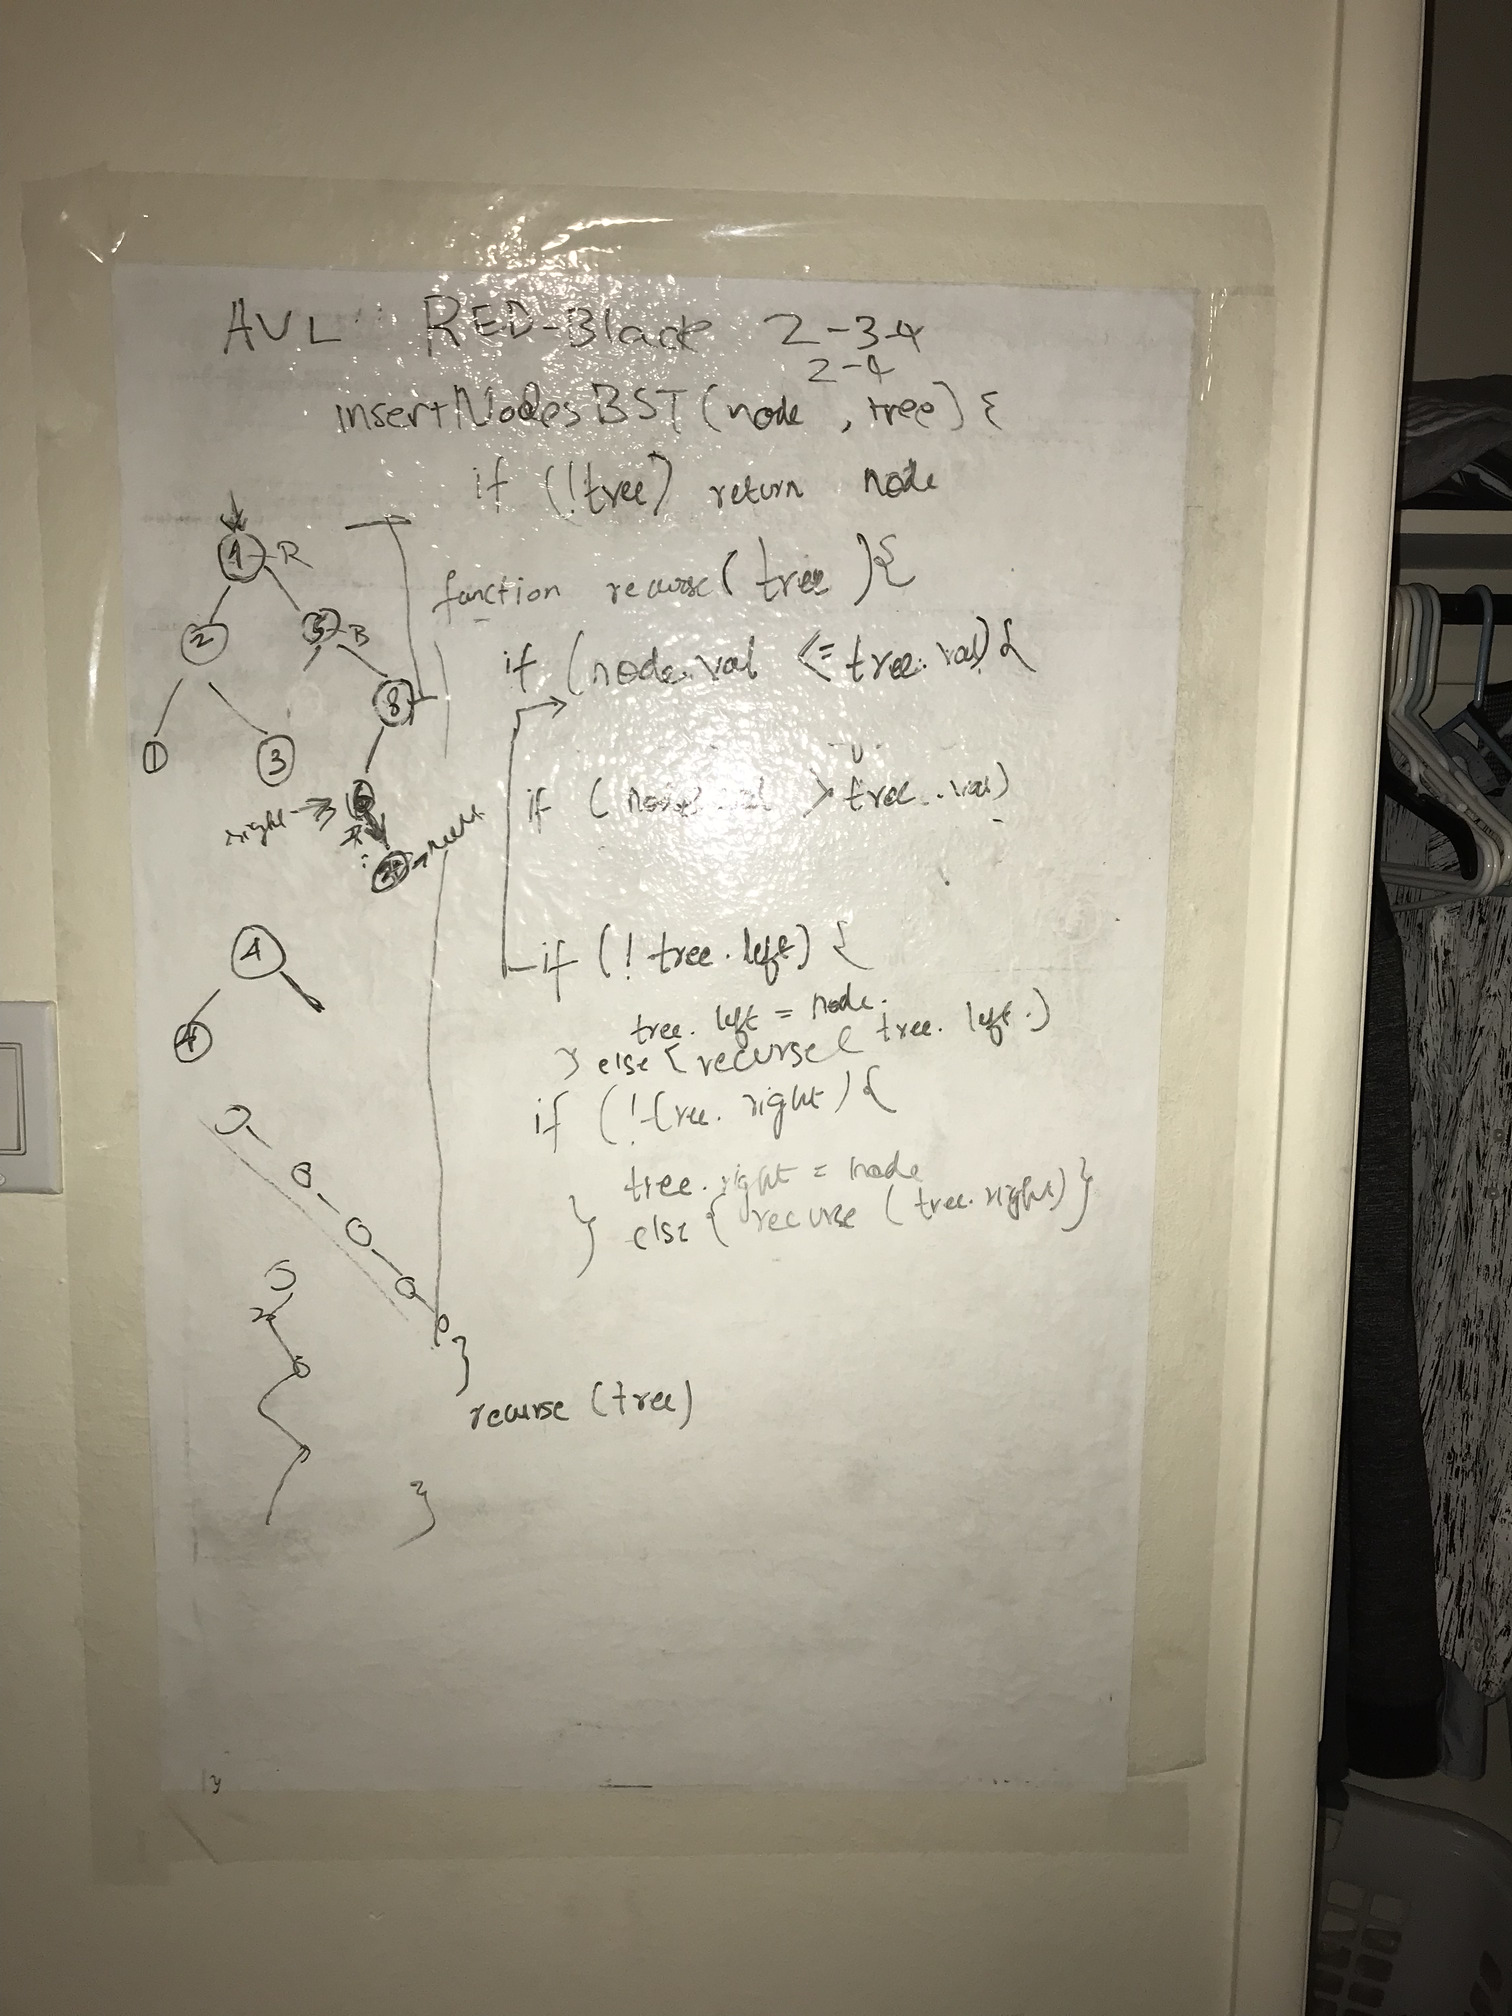 AVL RED-Black 2-3-4
2-4
insertNodesBST (node , tree) {
if (!tree) return node
4 - R
function recurse ( tree ) {
2 5 - B
if (node.val <= tree.val) {
8
1 3
if ( > tree.val)
6
right
4
if (! tree.left) {
tree.left = node.
4
} else { recurse ( tree.left.)
if (! tree.right) {
tree.right = node
} else { recurse (tree.right) }
}
recurse (tree)
}